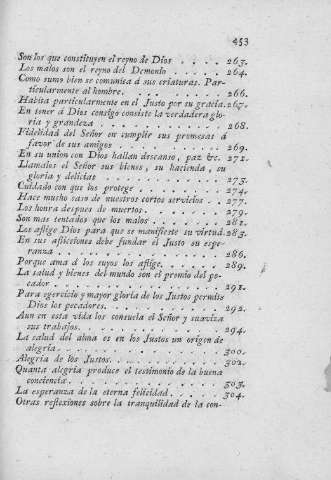 453
Son los que constituyen el reyno de Dios . . . . 263.
Los malos son el reyno del Demonio . . . . . 264.
Como sumo bien se comunica á sus criaturas. Par-
ticularmente al hombre. . . . . . . . . . . 266.
Habita particularmente en el Justo por su gracia. 267.
En tener á Dios consigo consiste la verdadera glo-
ria y grandeza . . . . . . . . . . . . . 268.
Fidelidad del Señor en cumplir sus promesas á
favor de sus amigos . . . . . . . . . . . 269.
En su union con Dios hallan descanso, paz &c. 271.
Llamalos el Señor sus bienes, su hacienda, su
gloria y delicias . . . . . . . . . . . . 273.
Cuidado con que los protege . . . . . . . . 274.
Hace mucho caso de nuestros cortos servicios . . 277.
Los honra despues de muertos. . . . . . . . 279.
Son mas tentados que los malos . . . . . . . 281.
Los aflige Dios para que se manifieste su virtud. 283.
En sus aflicciones debe fundar el Justo su espe-
ranza . . . . . . . . . . . . . . . . 286.
Porque ama á los suyos los aflige. . . . . . . 289.
La salud y bienes del mundo son el premio del pe-
cador . . . . . . . . . . . . . . . . 291.
Para egercicio y mayor gloria de los Justos permite
Dios los pecadores. . . . . . . . . . . . 292.
Aun en esta vida los consuela el Señor y suaviza
sus trabajos. . . . . . . . . . . . . . 294.
La salud del alma es en los Justos un origen de
alegria. . . . . . . . . . . . . . . . 300.
Alegria de los Justos. . . . . . . . . . . 302.
Quanta alegria produce el testimonio de la buena
conciencia. . . . . . . . . . . . . . . 303.
La esperanza de la eterna felicidad. . . . . . 304.
Otras reflexiones sobre la tranquilidad de la con-